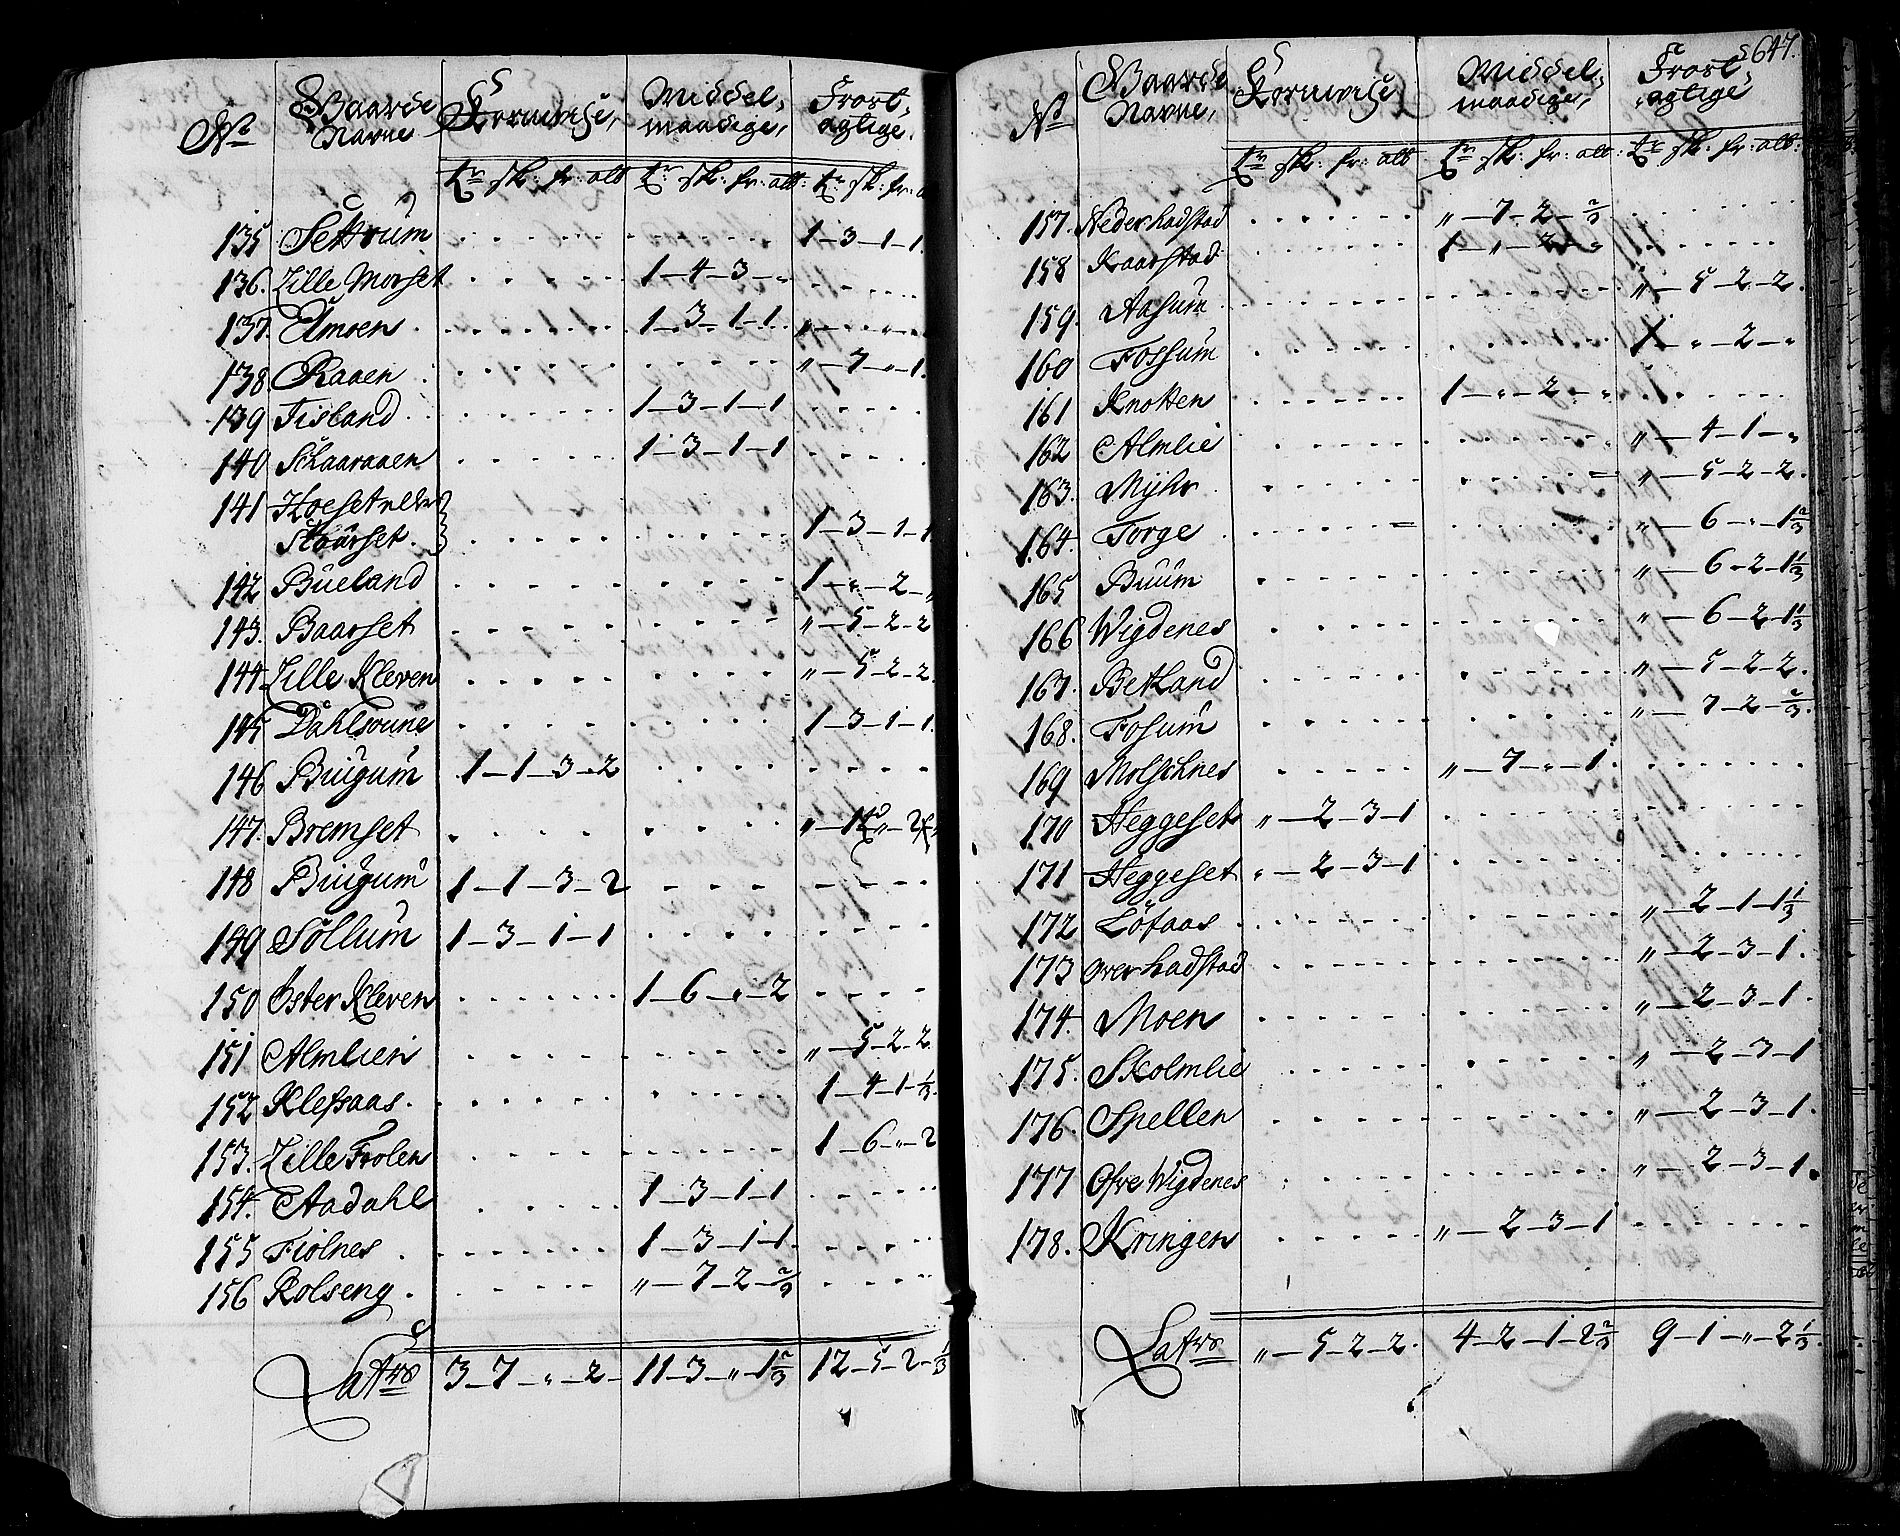 No Gaarde Navne Kornvise, Middelmaadige, Frostagtige.
tr sk: fr: alb tr sk: fr: alb: tr sk: fr: a
135 Settrum 1-3-1-1
136. Lille Morset 1-4-3-"
137. Elmoen 1-3-1-1
138 Raaen "-7-"-1.
139 Fisland 1-3-1-1
140 Skaaraaen 1-3-1-1
141 Hoeset
Staarset. 1-3-1-1
142 Bueland 1-"-2-"
143. Baarset "-5-2-2
144 Lille Kleven "-5-2-2.
145 Dahlsrune 1-3-1-1.
146 Buigum 1-1-3-2
147. Bremset
148 Buigum 1-1-3-2
149 Söllum 1-3-1-1
150 Öster Kleven 1-6-"-2
151 Almlien "-5-2-2
152 Klefsaas. 1-4-1 1/3.
153. Lille Frolen 1-6-"-2
154. Aadahl 1-3-1-1
155 Fiolnes 1-3-1-1.
156 Rolseng. "-7-2-2/3
Latus 3-7-"-2- 11-3-"-1 2/3 12-5-2-1/3
647.
No Gaarde Navne, Kornvise, Middelmaadige, Frostagtige
tr sk: fr: alb tr sk: fr: alb: tr sk: fr: alb:
157. Nederhadstad "-7-2-2/3
158 Kaarstad 1-"-2-"
159. Aasum "-5-2-2.
160 Fossum 1-"-2-"
161 Knotten 1-"-2-"
162 Almlie "-4-1-"
163. Myhr "-5-2-2.
164. Torge "-6-"-1 2/3
165 Buum "-6-2-1 1/3
166 Wigdenes "-6-2-1 1/3
167. Betland "-5-2-2.
168. Fosum "-7-2-2/3.
169 Molschnes "-7-"-1.
170 Heggeset "-2-3-1
171 Heggeset "-2-3-1
172 Löfaas "-2-1-1 1/3
173 Overhadstad "-2-3-1.
174. Moen "-2-3-1.
175. Skolmlie "-2-3-1
176. Spellen "-2-3-1.
177 Ofre Wigdenes "-2-3-1.
178. Kringen "-2-3-1
Latus "-5-2-2. 4-2-1-2 2/3 9-1-"-2 1/3.